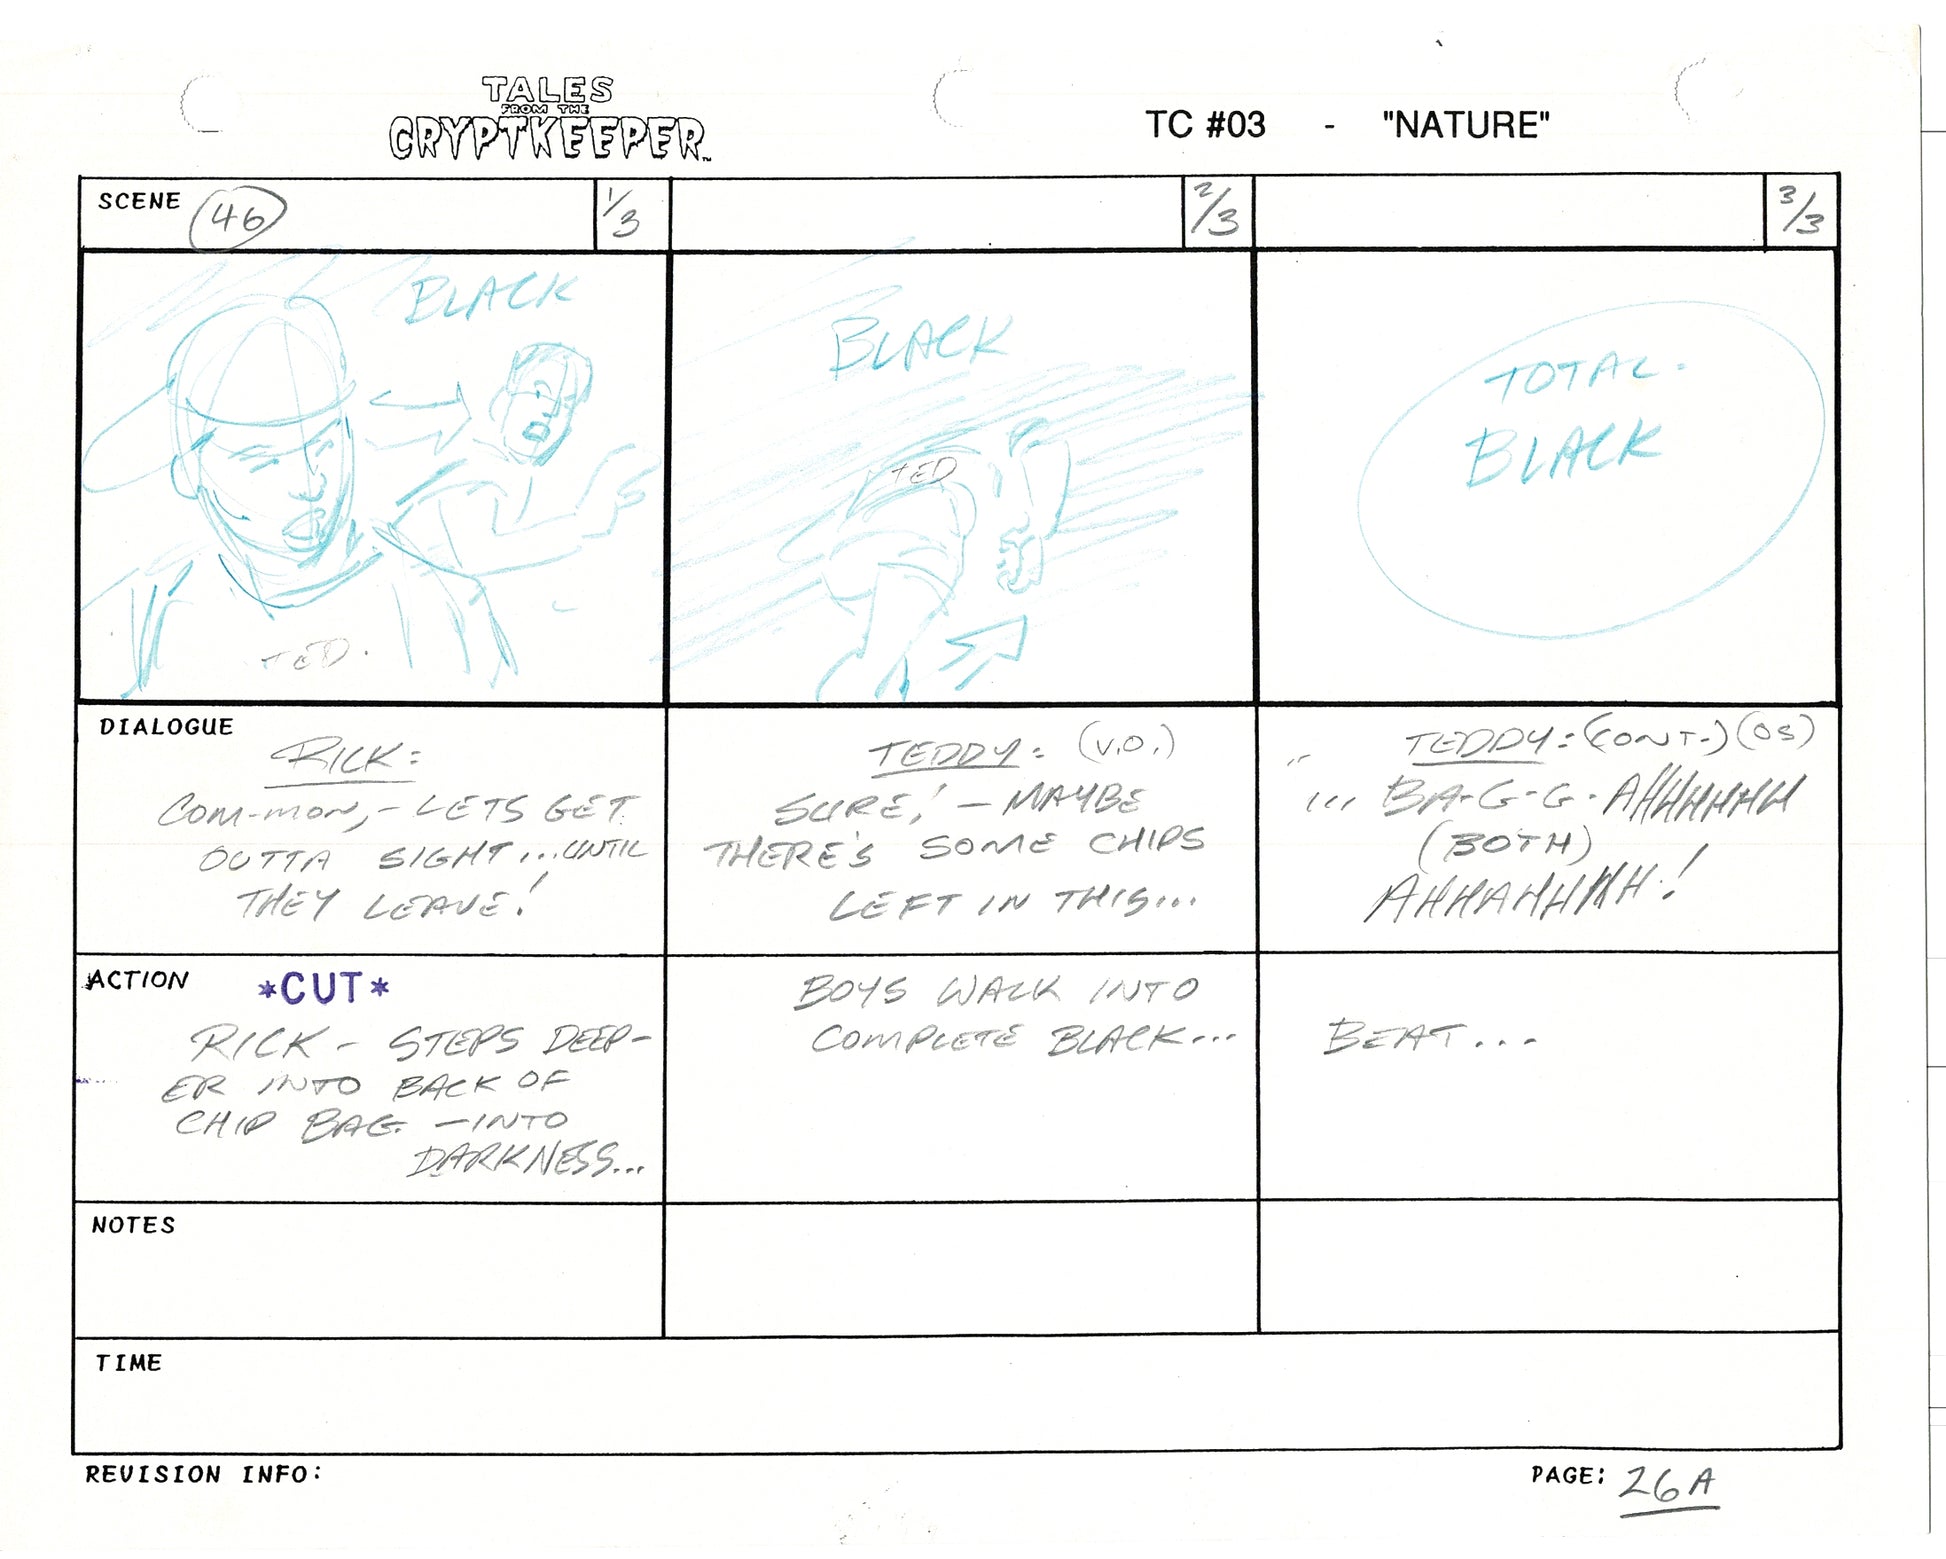 TALES
FROM THE
CRYPTKEEPER™
TC #03 - "NATURE"
SCENE 46 1/3
2/3
3/3
BLACK
TED.
BLACK
TED
TOTAL.
BLACK
DIALOGUE
RICK:
COM-MON, - LETS GET
OUTTA SIGHT...UNTIL
THEY LEAVE!
TEDDY: (V.O.)
SURE! - MAYBE
THERE'S SOME CHIPS
LEFT IN THIS...
TEDDY: (CONT.) (OS)
... BA-G-G-AHHHHHHH
(BOTH)
AHHAHHHHH!
ACTION
*CUT*
RICK - STEPS DEEP-
ER INTO BACK OF
CHIP BAG. - INTO
DARKNESS...
BOYS WALK INTO
COMPLETE BLACK...
BEAT...
NOTES
TIME
REVISION INFO:
PAGE: 26A